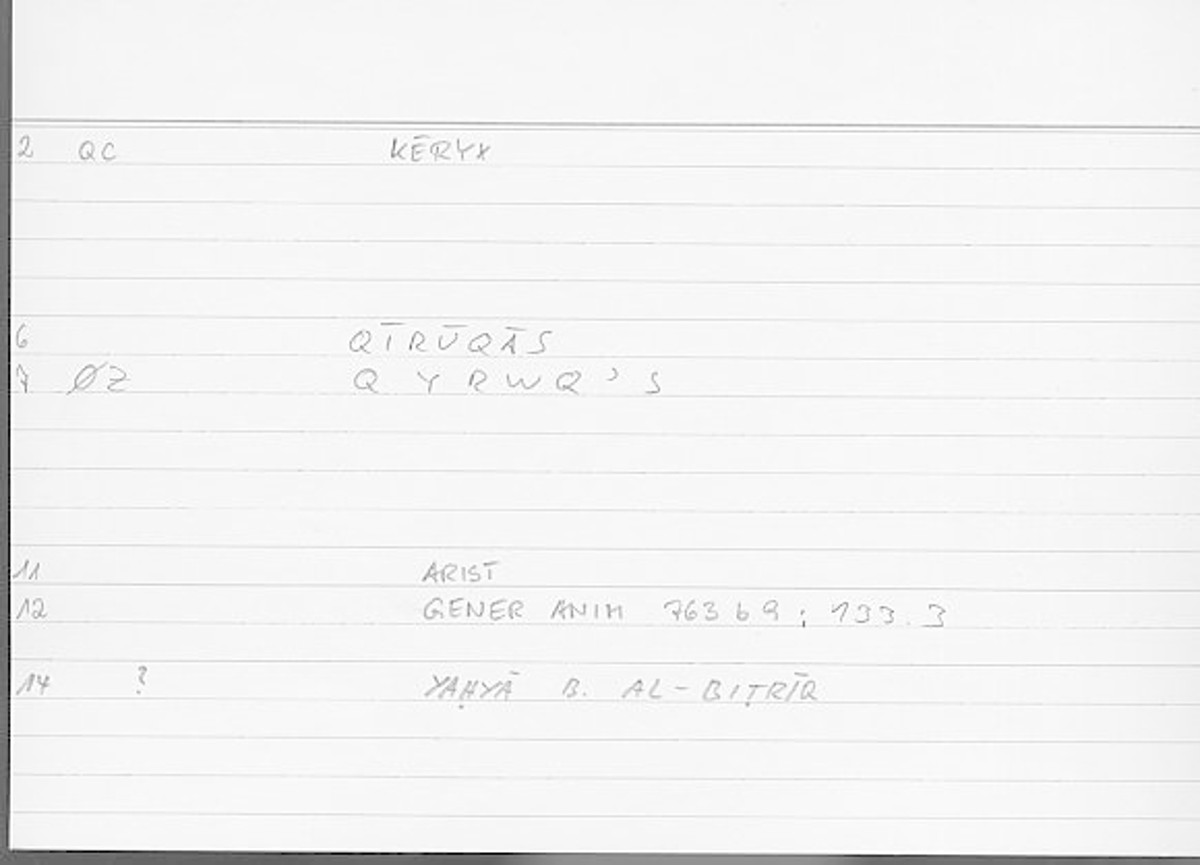 2 QC KĒRYX
6 QĪRŪQĀS
7 ØZ Q Y R W Q ʾ S
11 ARIST
12 GENER ANIM 763 b 9 ; 133.3
14 ? YAḤYĀ B. AL-BIṬRĪQ